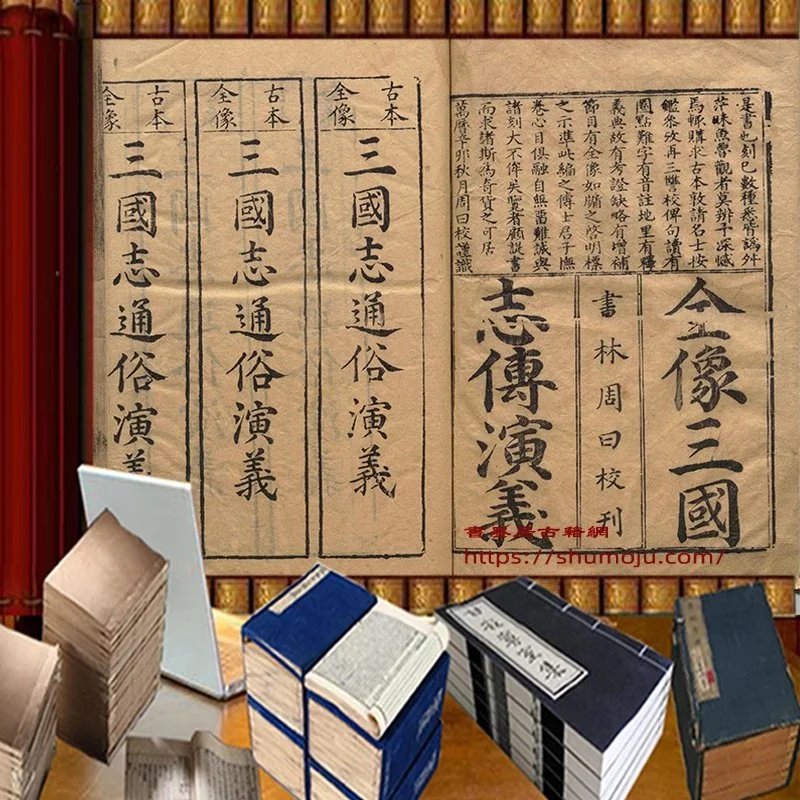 是書也刻已數種悉皆譌舛
茫昧魚魯觀者莫辨予深憾
焉輒購求古本敦請名士按
鑑參攷再三讐校俾句讀有
圈點難字有音註地里有釋
義典故有考證缺略有增補
節目有全像如牖之啓明標
之示準此編之傳士君子撫
卷心目俱融自無留難誠與
諸刻大不侔矣覽者顧諟書
而求諸斯為奇貨之可居
萬曆辛卯秋月周曰校謹識
全像三國
書林周曰校刊
志傳演義
古本
全像
三國志通俗演義
古本
全像
三國志通俗演義
古本
全像
三國志通俗演義
古籍網
https://shumoju.com/